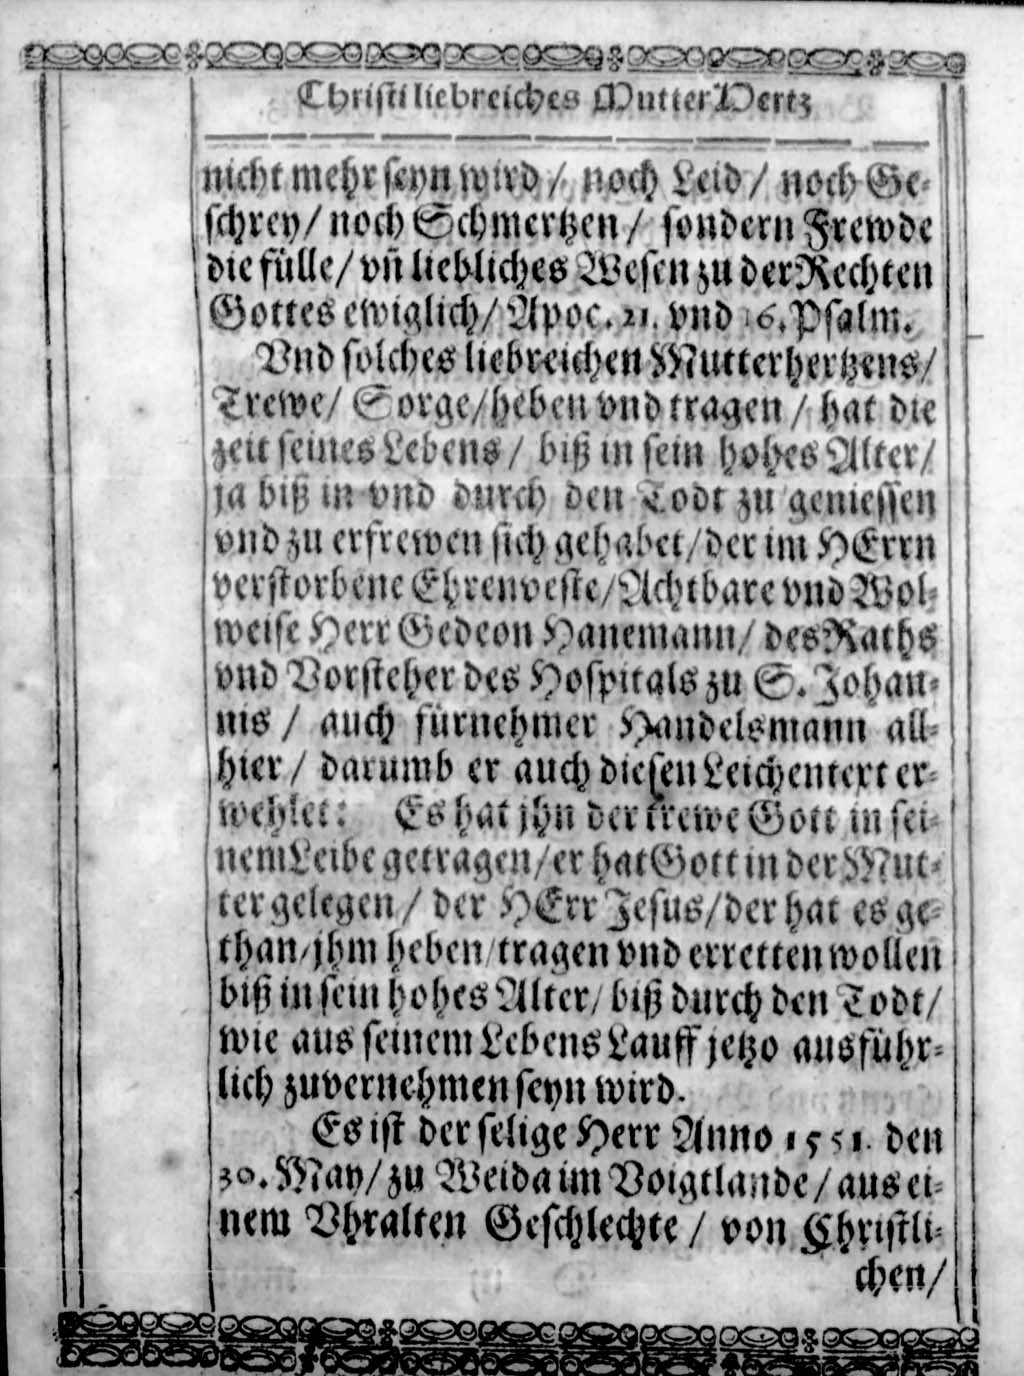 Christi liebreiches Mutter Hertz
nicht mehr seyn wird / noch Leid / noch Ge-
schrey / noch Schmertzen / sondern Frewde
die fülle / vñ liebliches Wesen zu der Rechten
Gottes ewiglich / Apoc. 21. vnd 16. Psalm.
Vnd solches liebreichen Mutterhertzens /
Trewe / Sorge / heben vnd tragen / hat die
zeit seines Lebens / biß in sein hohes Alter /
ja biß in vnd durch den Todt zu geniessen
vnd zu erfrewen sich gehabet / der im HErrn
verstorbene Ehrenveste / Achtbare vnd Wol-
weise Herr Gedeon Hanemann / des Raths
vnd Vorsteher des Hospitals zu S. Johan-
nis / auch fürnehmer Handelsmann all-
hier / darumb er auch diesen Leichentext er-
wehlet: Es hat jhn der trewe Gott in sei-
nem Leibe getragen / er hat Gott in der Mut-
ter gelegen / der HErr Jesus / der hat es ge-
than / jhm heben / tragen vnd erretten wollen
biß in sein hohes Alter / biß durch den Todt /
wie aus seinem Lebens Lauff jetzo ausführ-
lich zuvernehmen seyn wird.
Es ist der selige Herr Anno 1551. den
30. May / zu Weida im Voigtlande / aus ei-
nem Vhralten Geschlechte / von Christli-
chen /